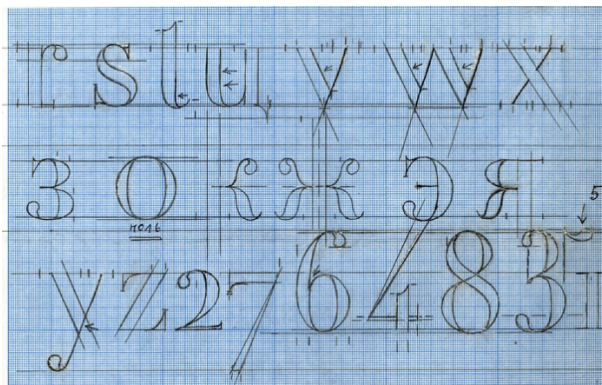 r s t ц v w x
З О К Ж Э Я
ноль
5
y z 2 7 6 4 8 3